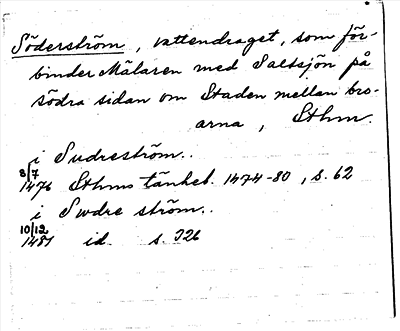 Söderström, vattendraget, som för-
binder Mälaren med Saltsjön på
södra sidan om Staden mellan bro-
arna, Sthm.
i Sudreström..
8/7
1476 Sthms tänkeb. 1474-80, s. 62
i Swdre ström..
10/12
1481 id. s. 326